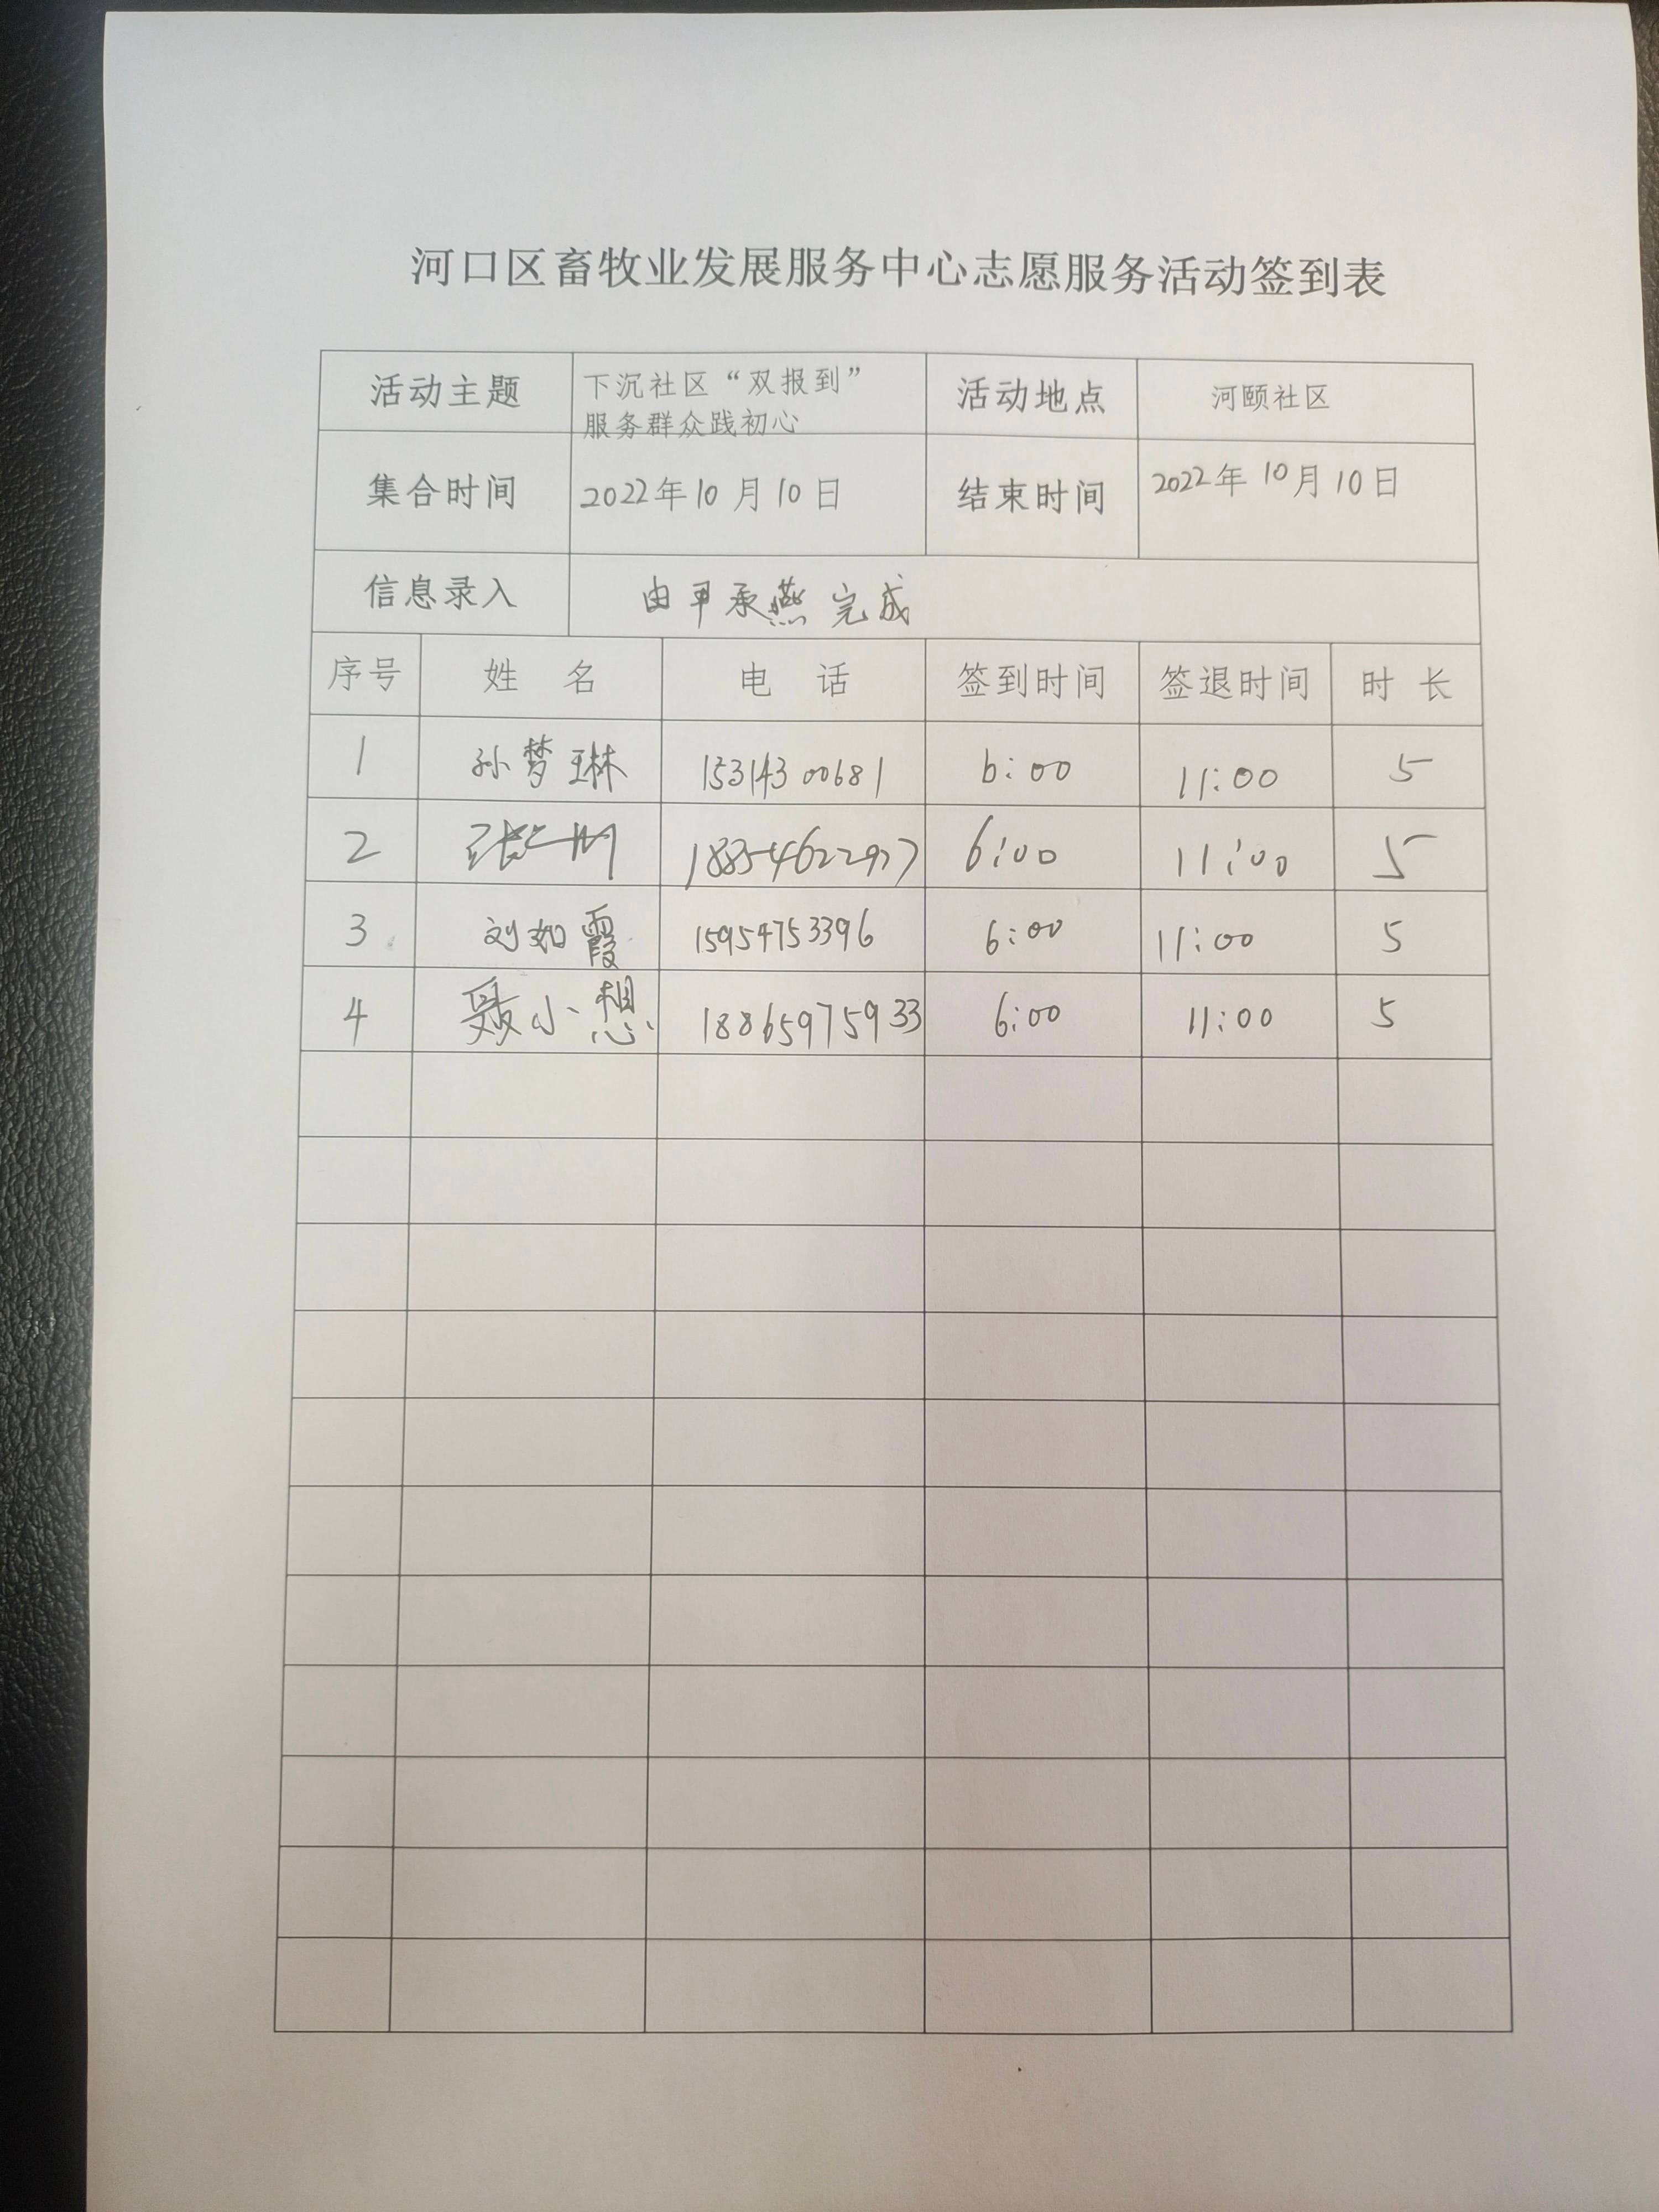 河口区畜牧业发展服务中心志愿服务活动签到表
活动主题 下沉社区“双报到” 活动地点 河颐社区
服务群众践初心
集合时间 2022年10月10日 结束时间 2022年10月10日
信息录入 由 承燕完成
序号 姓 名 电 话 签到时间 签退时间 时 长
1 孙梦琳 15314300681 6:00 11:00 5
2 张 6:00 11:00 5
3 刘如霞 15954753396 6:00 11:00 5
4 聂小想 18865975933 6:00 11:00 5